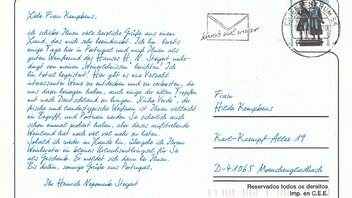 Liebe Frau Kempkens,
ich schicke Ihnen viele herzliche Grüße aus einem
Land, das mich sehr beeindruckt. Ich bin bereits
einige Tage hier in Portugal und muß Ihnen als
guter Weinfreund des Hauses H. N. Steyert unbe-
dingt von meinen Weinerlebnissen berichten! Ich
bin total begeistert. Hier gibt es eine Vielzahl
interessanter Weine zu entdecken und zu verkosten, die
uns dazu bewogen haben, auch einige der edlen Tropfen
mit nach Deutschland zu bringen. "Vinho Verde", der
frische und leicht Weißwein ist Ihnen vielleicht
ein Begriff, und Portwein werden Sie sicherlich auch
schon einmal probiert haben, aber dieses aufstrebende
Weinland hat noch viel viel mehr zu bieten.
Sobald ich wieder im Lande bin, übergebe ich Ihrem
Weinberater ein kleines Urlaubsmitbringsel für Sie
als Geschenk. Er meldet sich dann bei Ihnen.
Bis dahin, sonnige Grüße aus Portugal,
Ihr Heinrich Nepomuk Steyert
Frau
Hilde Kempkens
Karl-Kaempf-Allee 19
D-41065 Moenchengladbach
Reservados todos os direitos
Imp. en C.E.E.